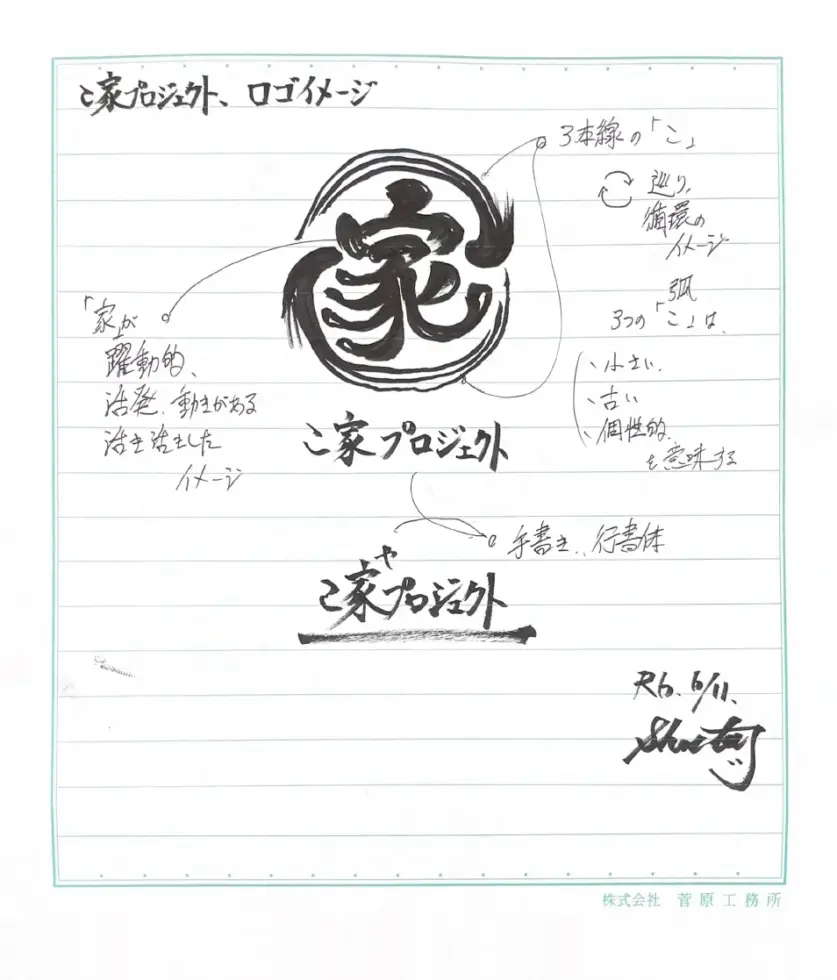 こ家プロジェクト、ロゴイメージ
3本線の「こ」
巡り、
循環の
イメージ
家
弧
3つの「こ」は、
、小さい、
、古い
、個性的、
を意味する
「家」が
躍動的、
活発、動きがある
活き活きした
イメージ
こ家プロジェクト
手書き、、行書体
ヤ
こ家プロジェクト
R6. 6/11.
株式会社 菅原工務所